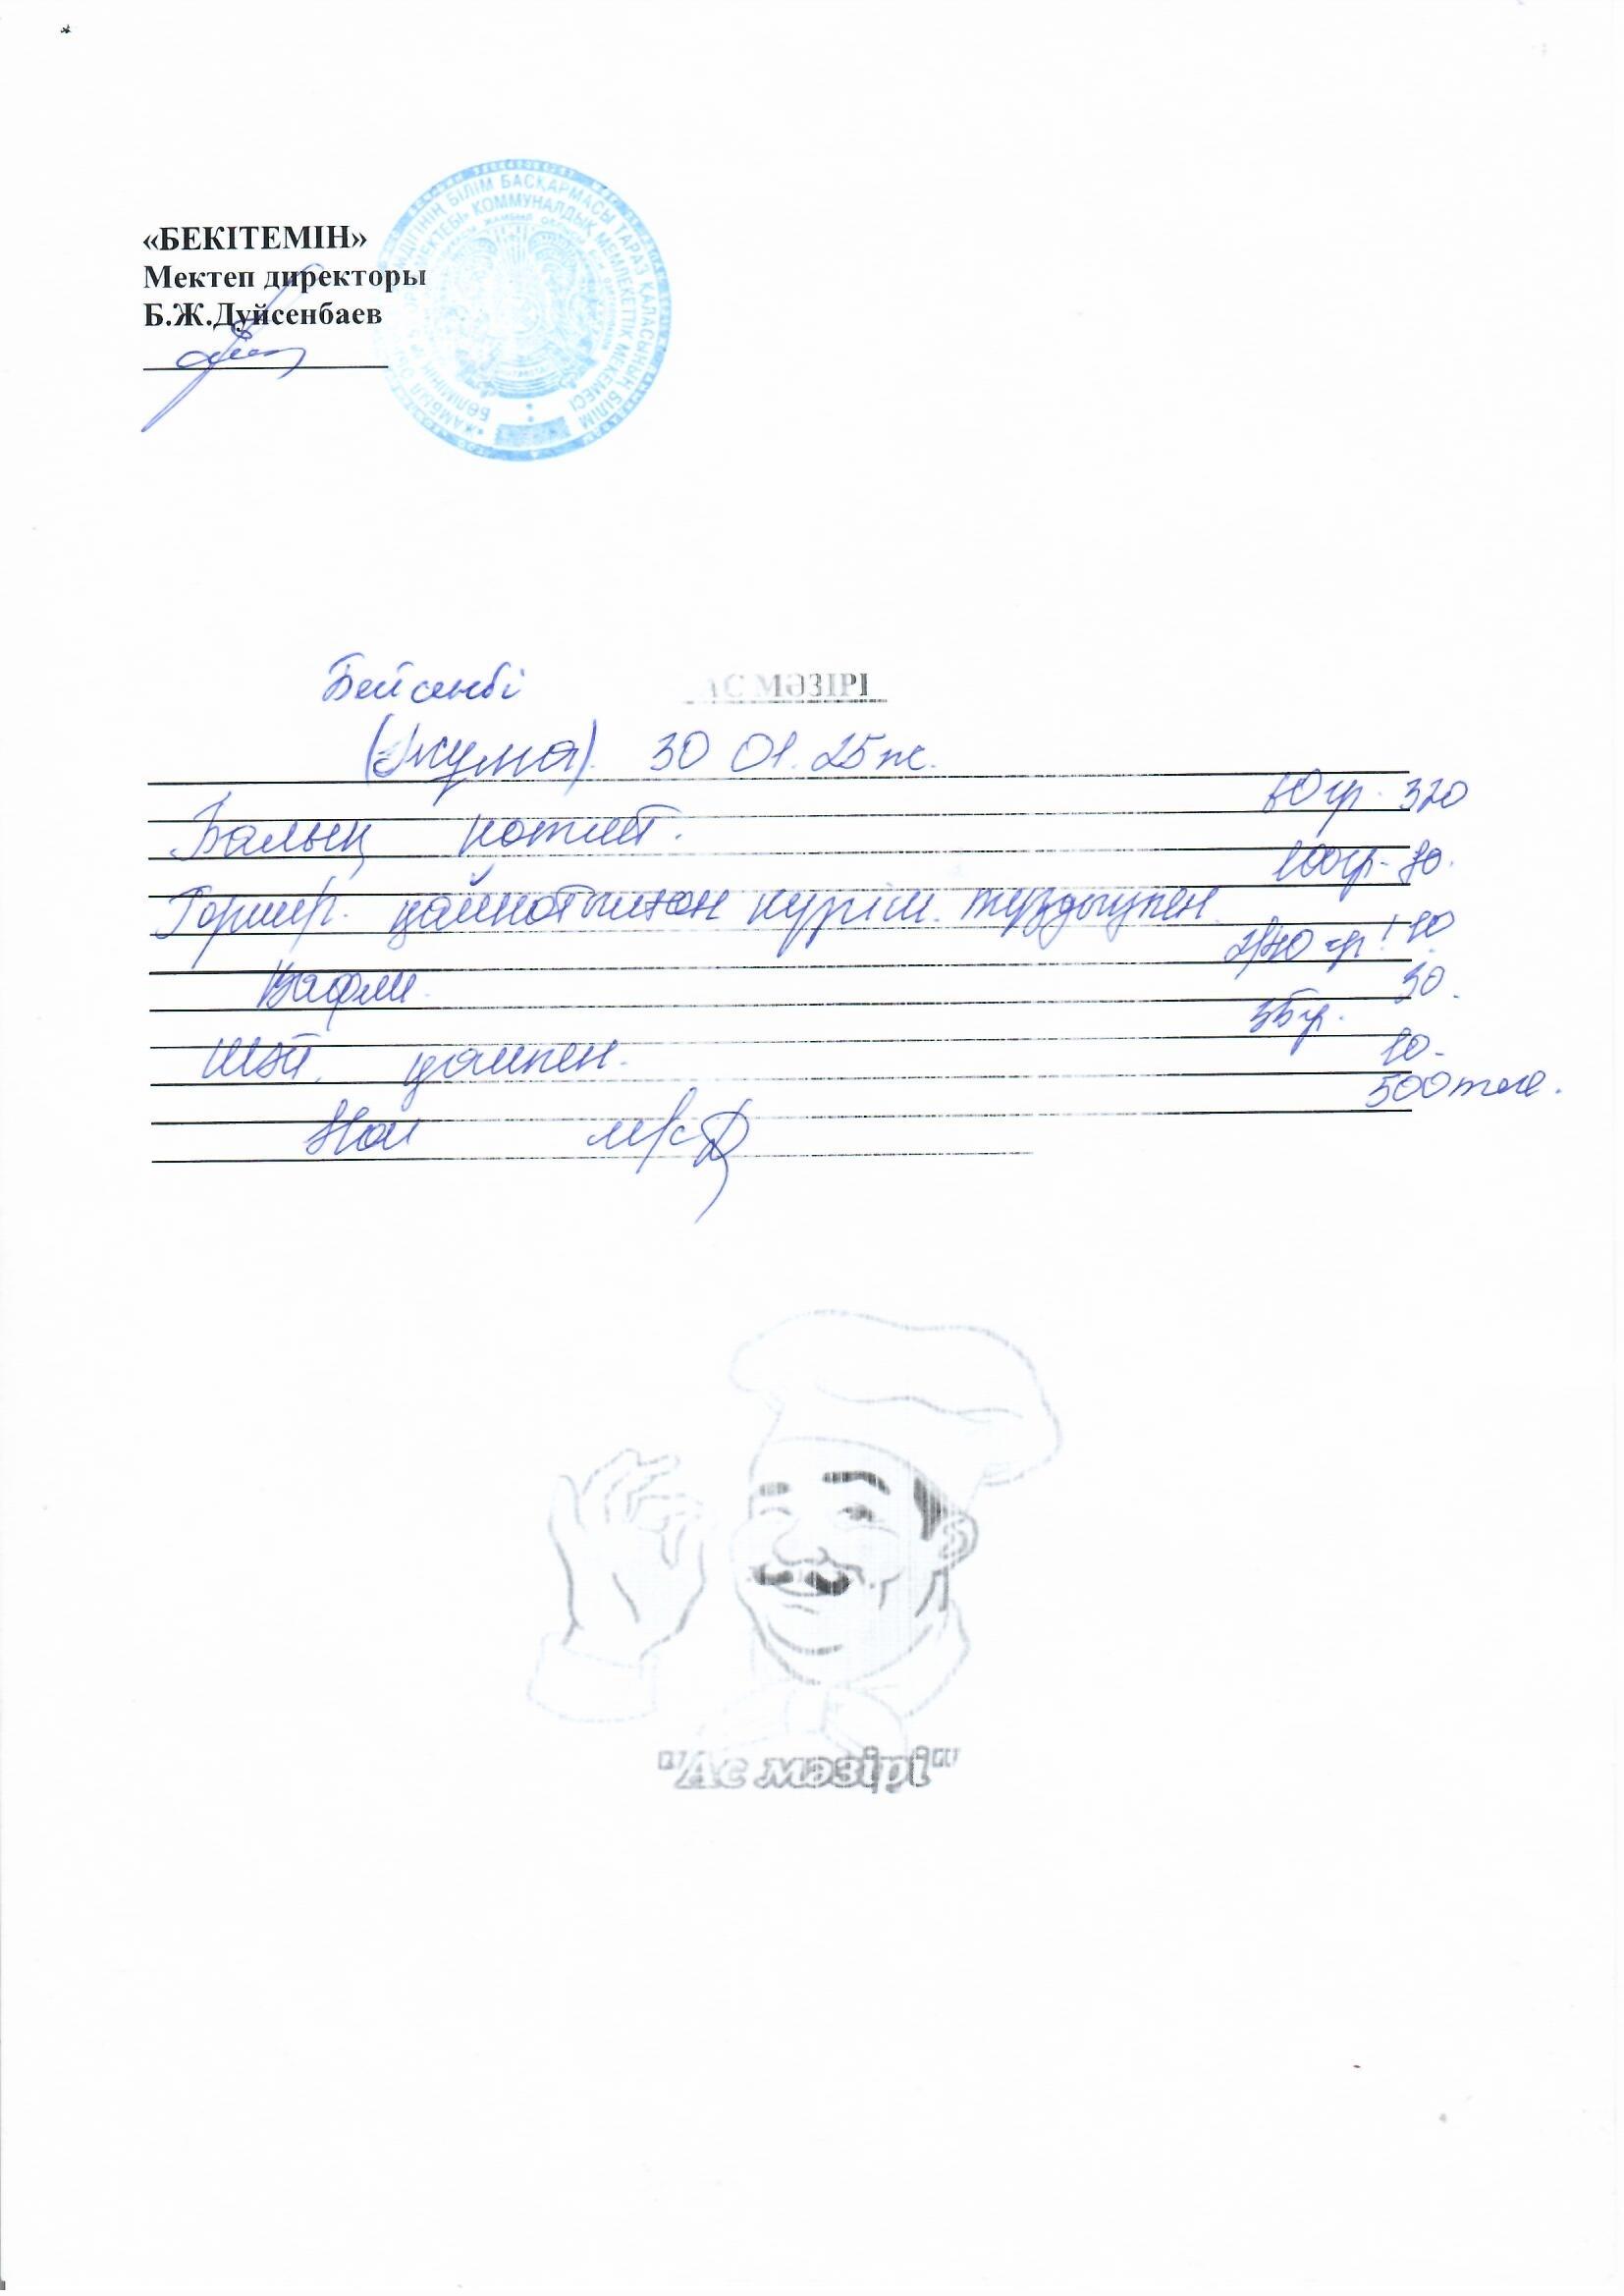 «БЕКІТЕМІН»
Мектеп директоры
Б.Ж.Дүйсенбаев
БІЛІМ БАСҚАРМАСЫ ТАРАЗ ҚАЛАСЫНЫҢ БІЛІМ
КОММУНАЛДЫҚ МЕМЛЕКЕТТІК МЕКЕМЕСІ
Бейсенбі АС МӘЗІРІ
(Жұма). 30 01. 25 ж.
Балық котлет. 80гр. 320
Гарнир. қайнатылған күріш. тұздықпен. 100гр- 70.
Вафли.
Шәй. қантпен. 35гр. 30.
Нан 10-
500тге.
"Ас мәзірі"